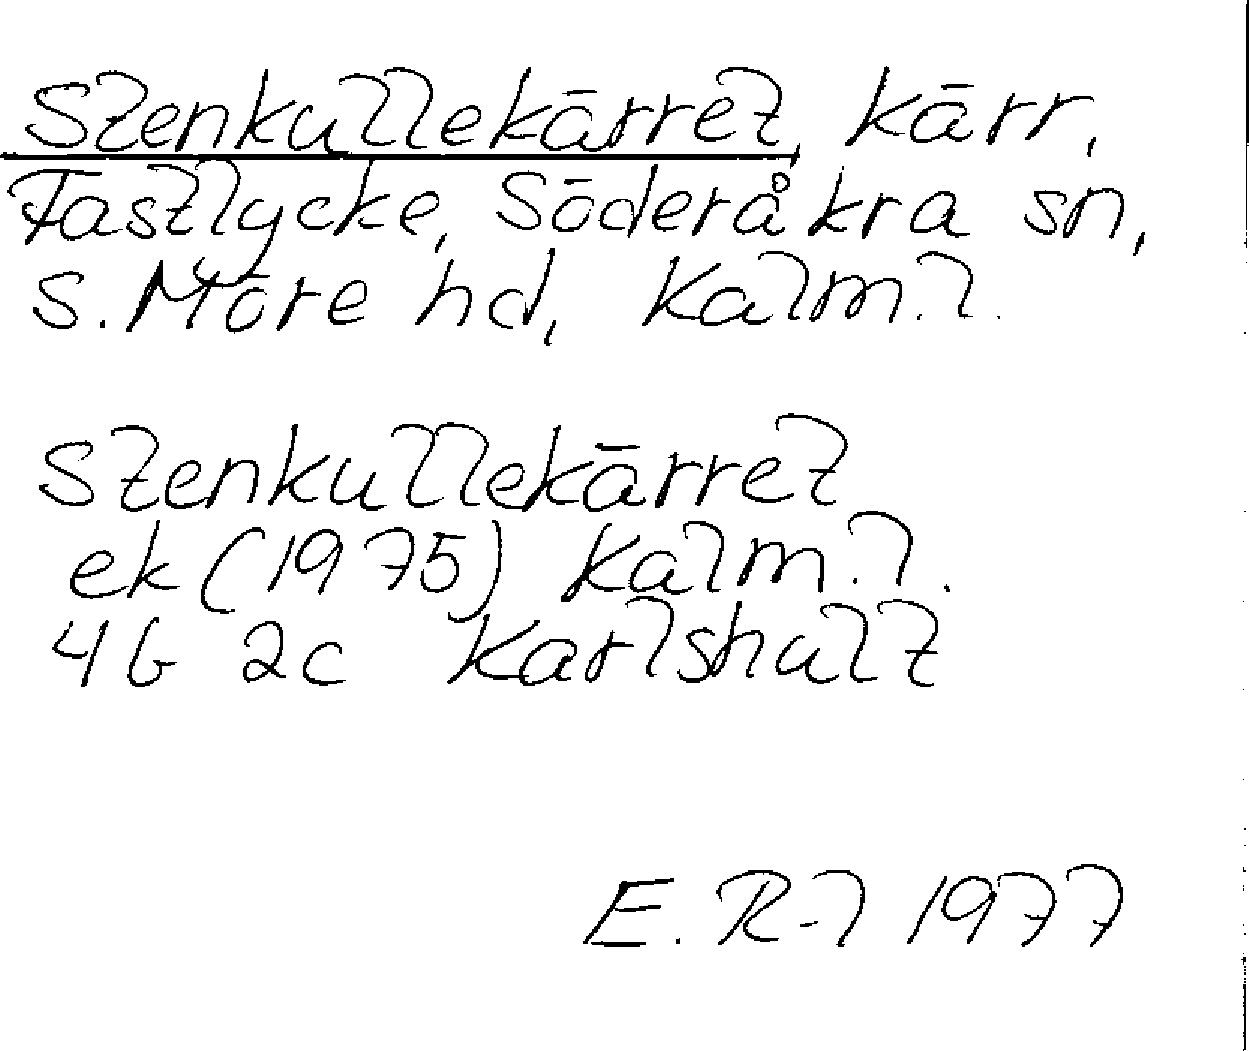 Stenkullekärret, kärr,
Fastlycke, Söderåkra sn,
S. Möre hd, Kalm. l.
Stenkullekärret
ek (1975) Kalm. l.
4G 2c Karlshult
E. R-l 1977